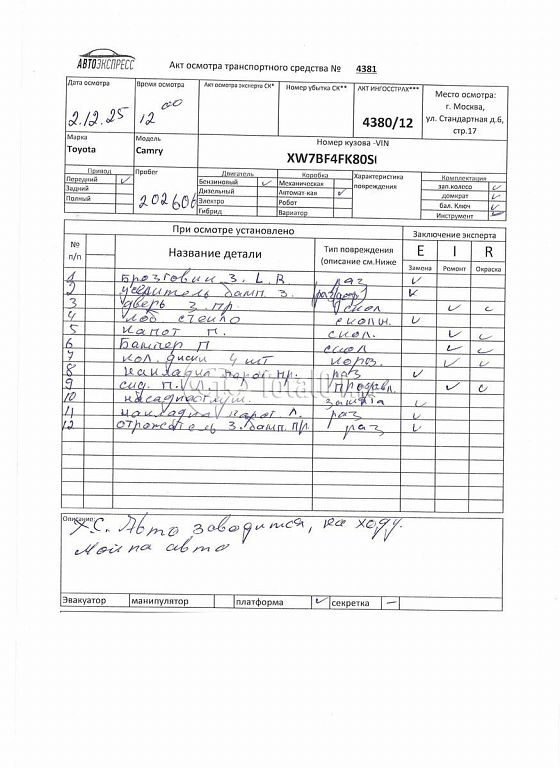 АВТОЭКСПРЕСС
Акт осмотра транспортного средства № 4381
Дата осмотра
Время осмотра
Акт осмотра эксперта СК*
Номер убытка СК**
АКТ ИНГОССТРАХ***
Место осмотра:
г. Москва,
ул. Стандартная д.6,
стр.17
2.12.25
12 00
4380/12
Марка
Модель
Номер кузова -VIN
Toyota
Camry
XW7BF4FK80S
Привод
Пробег
Двигатель
Коробка
Характеристика
повреждения
Комплектация
Передний ✓
Бензиновый ✓
Механическая
зап.колесо ✓
Задний
Дизельный
Автомат-кая ✓
домкрат ✓
Полный
202606
Электро
Робот
бал. Ключ ✓
Гибрид
Вариатор
Инструмент ✓
При осмотре установлено
Заключение эксперта
№
п/п
Название детали
Тип повреждения
(описание см.Ниже
E I R
Замена Ремонт Окраска
1 Брызговики З. L. R. раз ✓
2 усилитель бамп. З. ✓
3 дверь З. пр. скол ✓ ✓
4 лоб стекло сколы. ✓
5 капот П. скол. ✓ ✓
6 Бампер П скол ✓ ✓
7 кол. диски 4 шт короз. ✓ ✓
8 накладка порог. пр. раз ✓
9 сид. П. ✓ ✓
10 ✓
11 накладка порог Л. раз ✓
12 отражатель З. бамп. пр. раз ✓
Описание:
Х.С. Авто заводится, на ходу.
авто
Эвакуатор манипулятор платформа ✓ секретка —